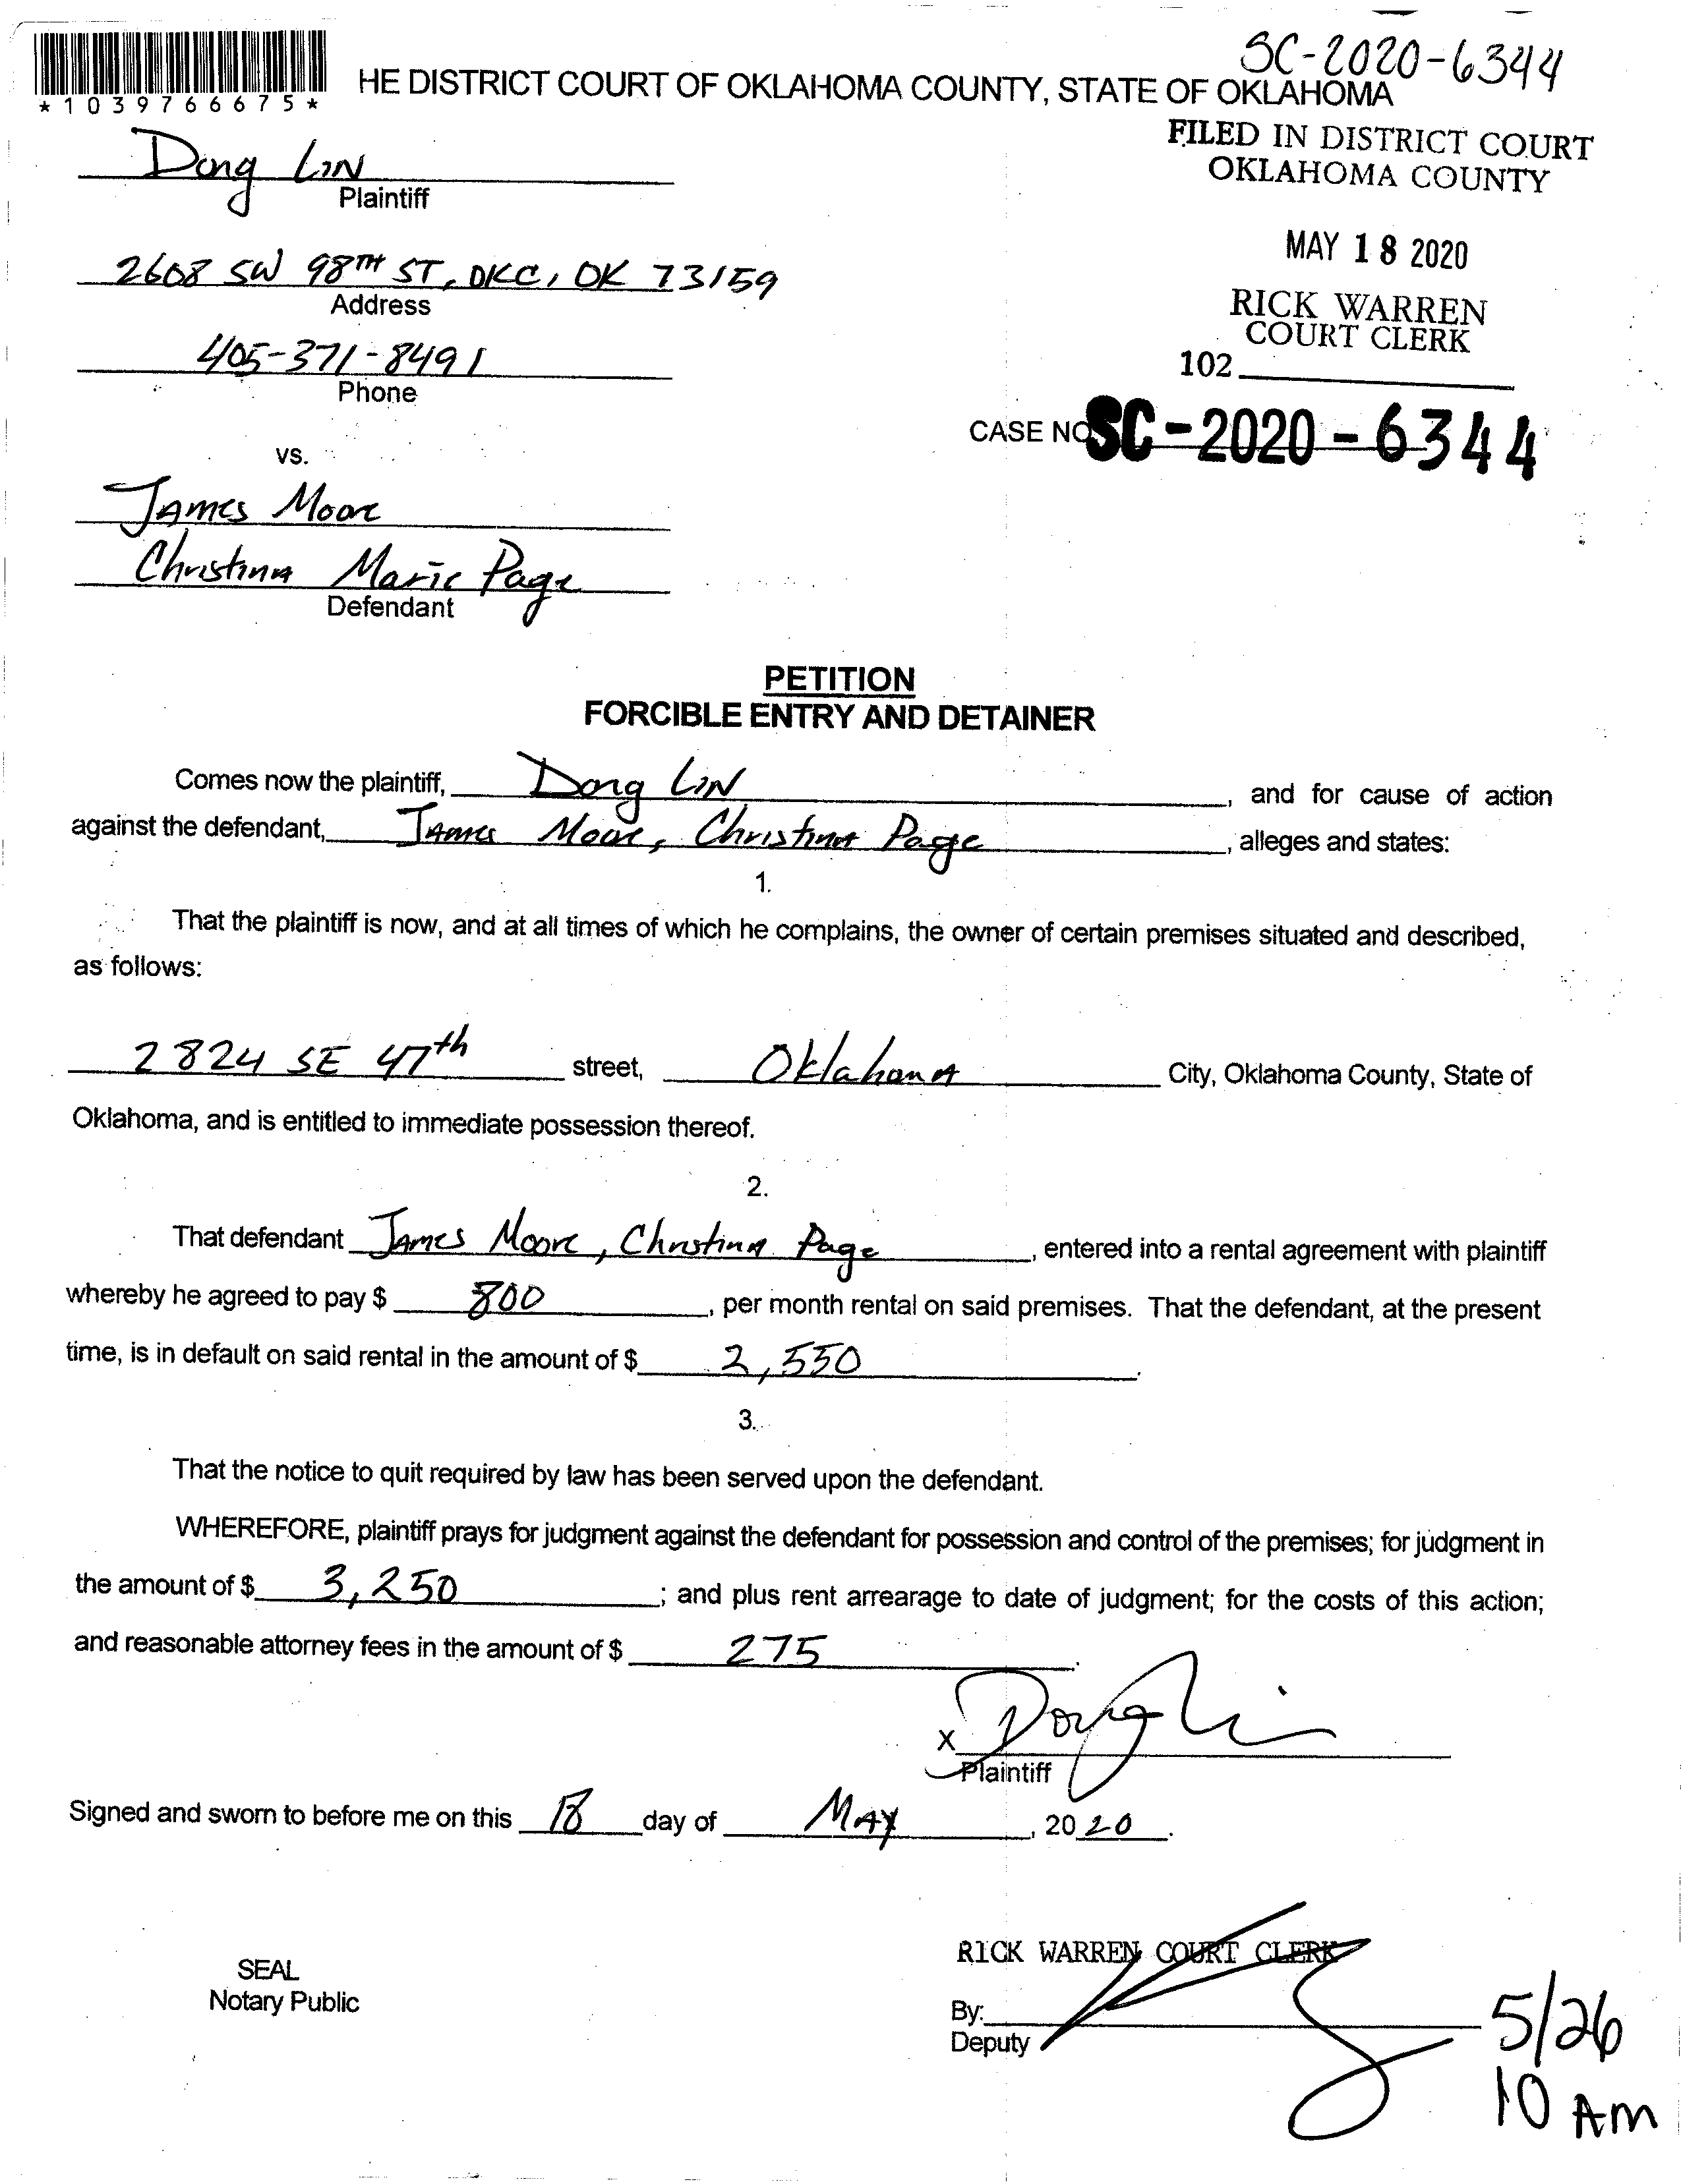 SC-2020-6344
*1039766675*
HE DISTRICT COURT OF OKLAHOMA COUNTY, STATE OF OKLAHOMA
FILED IN DISTRICT COURT
OKLAHOMA COUNTY
Dong LIN
Plaintiff
MAY 18 2020
2608 SW 98TH ST, OKC, OK 73159
Address
RICK WARREN
COURT CLERK
405-371-8491
102
Phone
CASE NO SC-2020-6344
vs.
JAMES Moore
Christina Marie Page
Defendant
PETITION
FORCIBLE ENTRY AND DETAINER
Comes now the plaintiff, Dong LIN, and for cause of action
against the defendant, JAMES Moore, Christina Page, alleges and states:
1.
That the plaintiff is now, and at all times of which he complains, the owner of certain premises situated and described,
as follows:
2824 SE 47th street, Oklahoma City, Oklahoma County, State of
Oklahoma, and is entitled to immediate possession thereof.
2.
That defendant JAMES Moore, Christina Page, entered into a rental agreement with plaintiff
whereby he agreed to pay $ 800, per month rental on said premises. That the defendant, at the present
time, is in default on said rental in the amount of $ 2,550.
3.
That the notice to quit required by law has been served upon the defendant.
WHEREFORE, plaintiff prays for judgment against the defendant for possession and control of the premises; for judgment in
the amount of $ 3,250; and plus rent arrearage to date of judgment; for the costs of this action;
and reasonable attorney fees in the amount of $ 275.
X Dong Lin
Plaintiff
Signed and sworn to before me on this 18 day of MAY, 2020.
RICK WARREN COURT CLERK
SEAL
Notary Public
By:
Deputy
5/26
10 AM